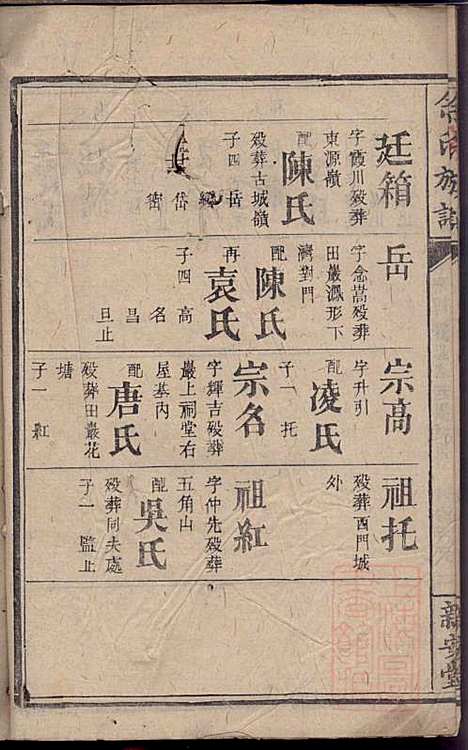 廷箱
字霞川殁葬
東源嶺
配
陳氏
殁葬古城嶺
子四 岳
岱
岳
字念嵩殁葬
田巖灣形下
灣對門
配
陳氏
再
袁氏
子四 高
名
昌
旦止
宗高
字升引
配
凌氏
子一 托
宗名
字輝吉殁葬
巖上祠堂右
屋基內
配
唐氏
殁葬田巖花
塘
子一 紅
祖托
殁葬西門城
外
祖紅
字仲先殁葬
五角山
配
吳氏
殁葬同夫處
子一 監止
氏族譜
新安堂